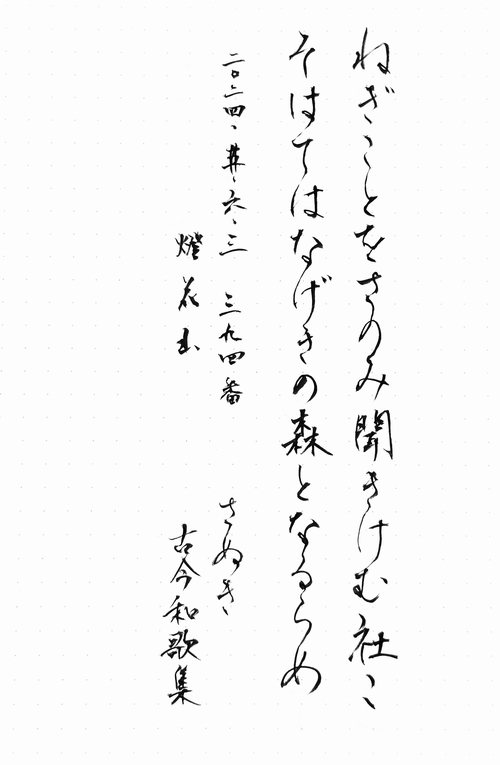 ねぎことをさのみ聞きけむ社こ
そはてはなげきの森となるらめ
二〇二四、六、三 三九四番 さぬき
燈花 古今和歌集